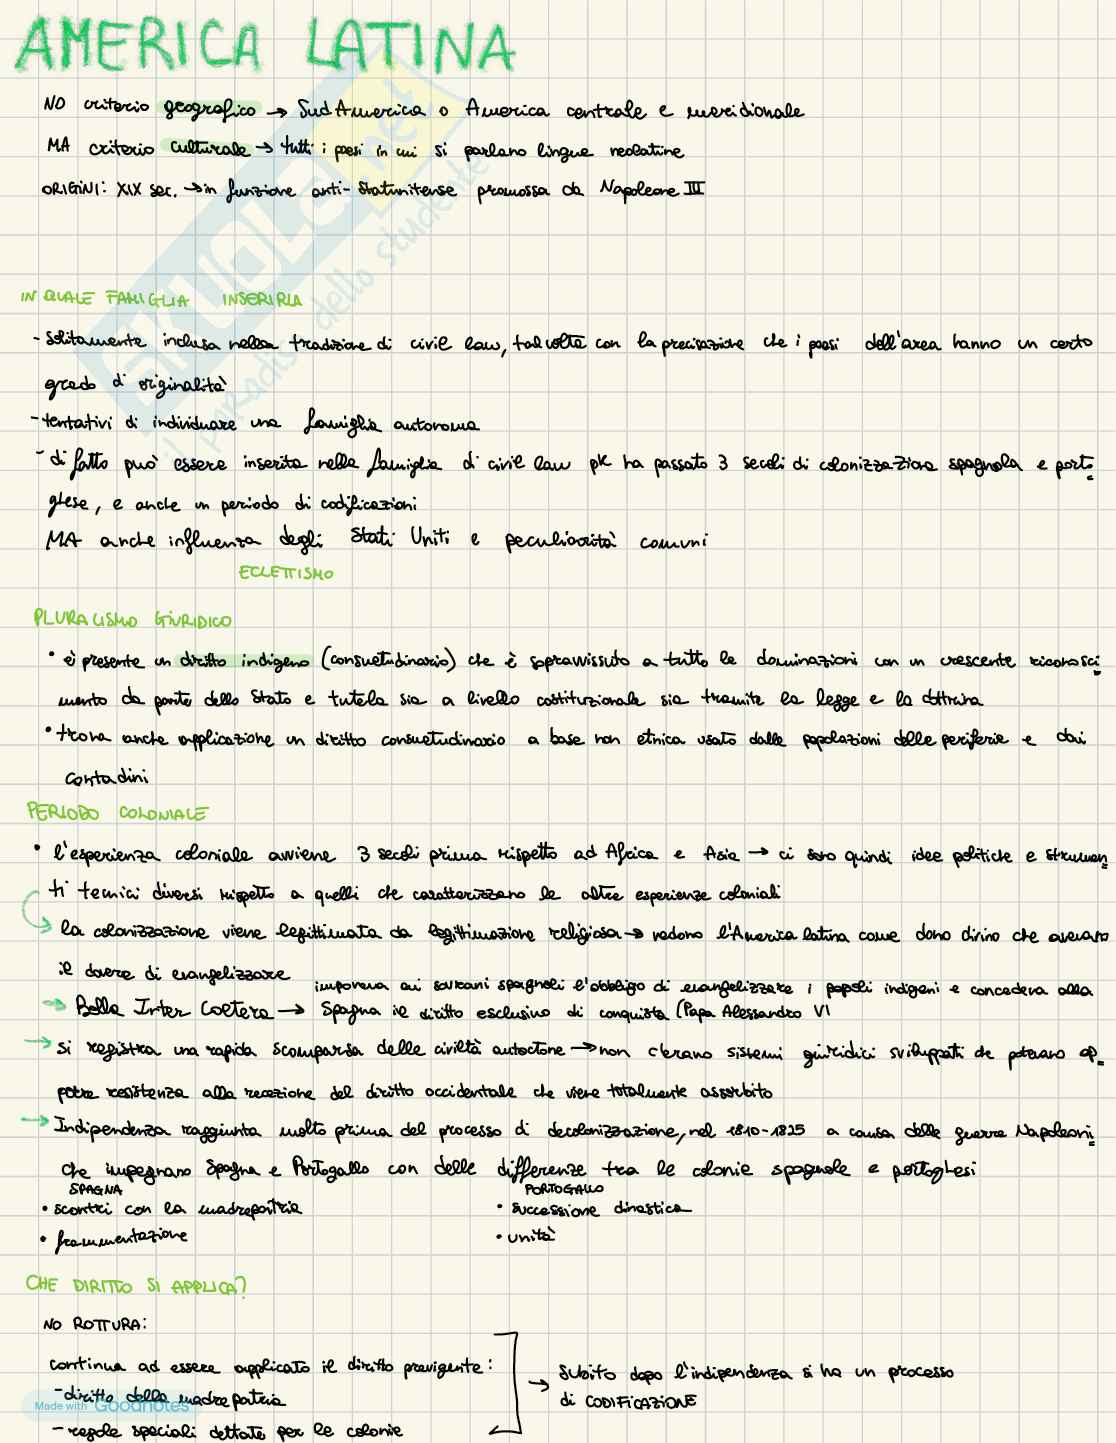 AMERICA LATINA
NO criterio geografico → Sud America o America centrale e meridionale
MA criterio culturale → tutti i paesi in cui si parlano lingue neolatine
ORIGINI: XIX sec. → in funzione anti-statunitense promossa da Napoleone III
IN QUALE FAMIGLIA INSERIRLA
- solitamente inclusa nella tradizione di civil law, talvolta con la precisazione che i paesi dell'area hanno un certo
grado di originalità
- tentativi di individuare una famiglia autonoma
- di fatto può essere inserita nella famiglia di civil law pk ha passato 3 secoli di colonizzazione spagnola e porto
ghese, e anche un periodo di codificazioni
MA anche influenza degli Stati Uniti e peculiarità comuni
ECLETTISMO
PLURALISMO GIURIDICO
• è presente un diritto indigeno (consuetudinario) che è sopravvissuto a tutto le dominazioni con un crescente riconosci
mento da parte dello Stato e tutela sia a livello costituzionale sia tramite la legge e la dottrina
• trova anche applicazione un diritto consuetudinario a base non etnica usato dalle popolazioni delle periferie e dai
contadini
PERIODO COLONIALE
• l'esperienza coloniale avviene 3 secoli prima rispetto ad Africa e Asia → ci sono quindi idee politiche e strumen
ti tecnici diversi rispetto a quelli che caratterizzano le altre esperienze coloniali
la colonizzazione viene legittimata da legittimazione religiosa → vedono l'America latina come dono divino che avevano
il dovere di evangelizzare
imponeva ai sovrani spagnoli l'obbligo di evangelizzare i popoli indigeni e concedeva alla
→ Bolla Inter Coetera → Spagna il diritto esclusivo di conquista (Papa Alessandro VI
→ si registra una rapida scomparsa delle civiltà autoctone → non c'erano sistemi giuridici sviluppati che potevano op
porre resistenza alla recezione del diritto occidentale che viene totalmente assorbito
→ Indipendenza raggiunta molto prima del processo di decolonizzazione, nel 1810-1825 a causa delle guerre Napoleoni
che impegnano Spagna e Portogallo con delle differenze tra le colonie spagnole e portoghesi
SPAGNA
• scontri con la madrepatria
• frammentazione
PORTOGALLO
• successione dinastica
• unità
CHE DIRITTO SI APPLICA?
NO ROTTURA:
continua ad essere applicato il diritto previgente:
- diritto della madrepatria
- regole speciali dettate per le colonie
→ Subito dopo l'indipendenza si ha un processo
di CODIFICAZIONE
Made with Goodnotes
SKUOLA.net
il paradiso dello studente